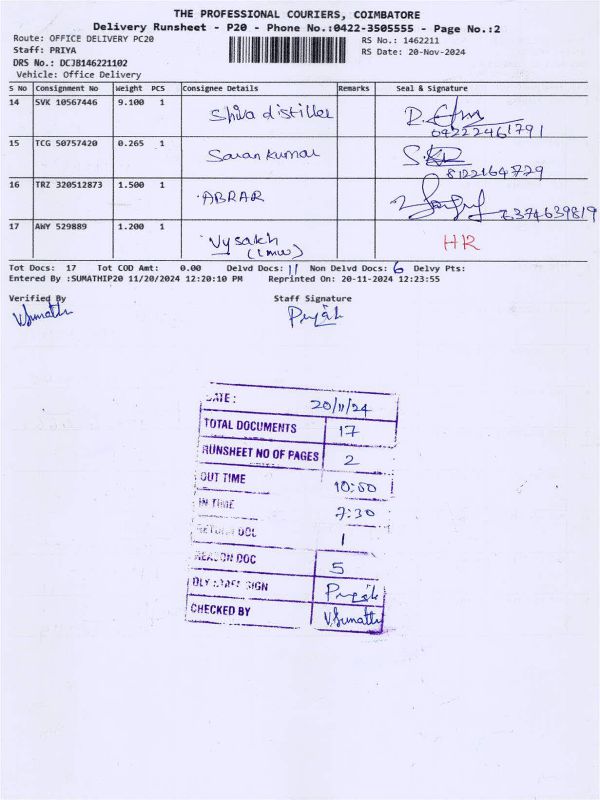 THE PROFESSIONAL COURIERS, COIMBATORE
Delivery Runsheet - P20 - Phone No.:0422-3505555 - Page No.:2
Route: OFFICE DELIVERY PC20
RS No.: 1462211
Staff: PRIYA
RS Date: 20-Nov-2024
DRS No.: DCJB146221102
Vehicle: Office Delivery
S No Consignment No Weight PCS Consignee Details Remarks Seal & Signature
14 SVK 10567446 9.100 1 Shiva distiller
09222461791
15 TCG 50757420 0.265 1 Saran kumar
8122164729
16 TRZ 320512873 1.500 1 ABRAR
7374639819
17 AWY 529889 1.200 1 Vysakh HR
(LMW)
Tot Docs: 17 Tot COD Amt: 0.00 Delvd Docs: 11 Non Delvd Docs: 6 Delvy Pts:
Entered By :SUMATHIP20 11/20/2024 12:20:10 PM Reprinted On: 20-11-2024 12:23:55
Verified By Staff Signature
V.Sumathi
DATE : 20/11/24
TOTAL DOCUMENTS 17
RUNSHEET NO OF PAGES 2
OUT TIME 10:00
IN TIME 7:30
RETURN DOC 1
REASON DOC 5
DLY STAFF SIGN
CHECKED BY V.Sumathi